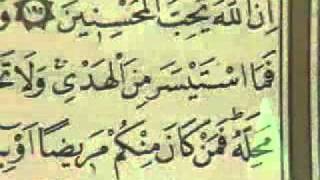 إِنَّ اللَّهَ يُحِبُّ الْمُحْسِنِينَ ١٩٥ و
فَمَا اسْتَيْسَرَ مِنَ الْهَدْيِ وَلَا تَح
مَحِلَّهُ فَمَنْ كَانَ مِنْكُمْ مَرِيضًا أَوْ بِ